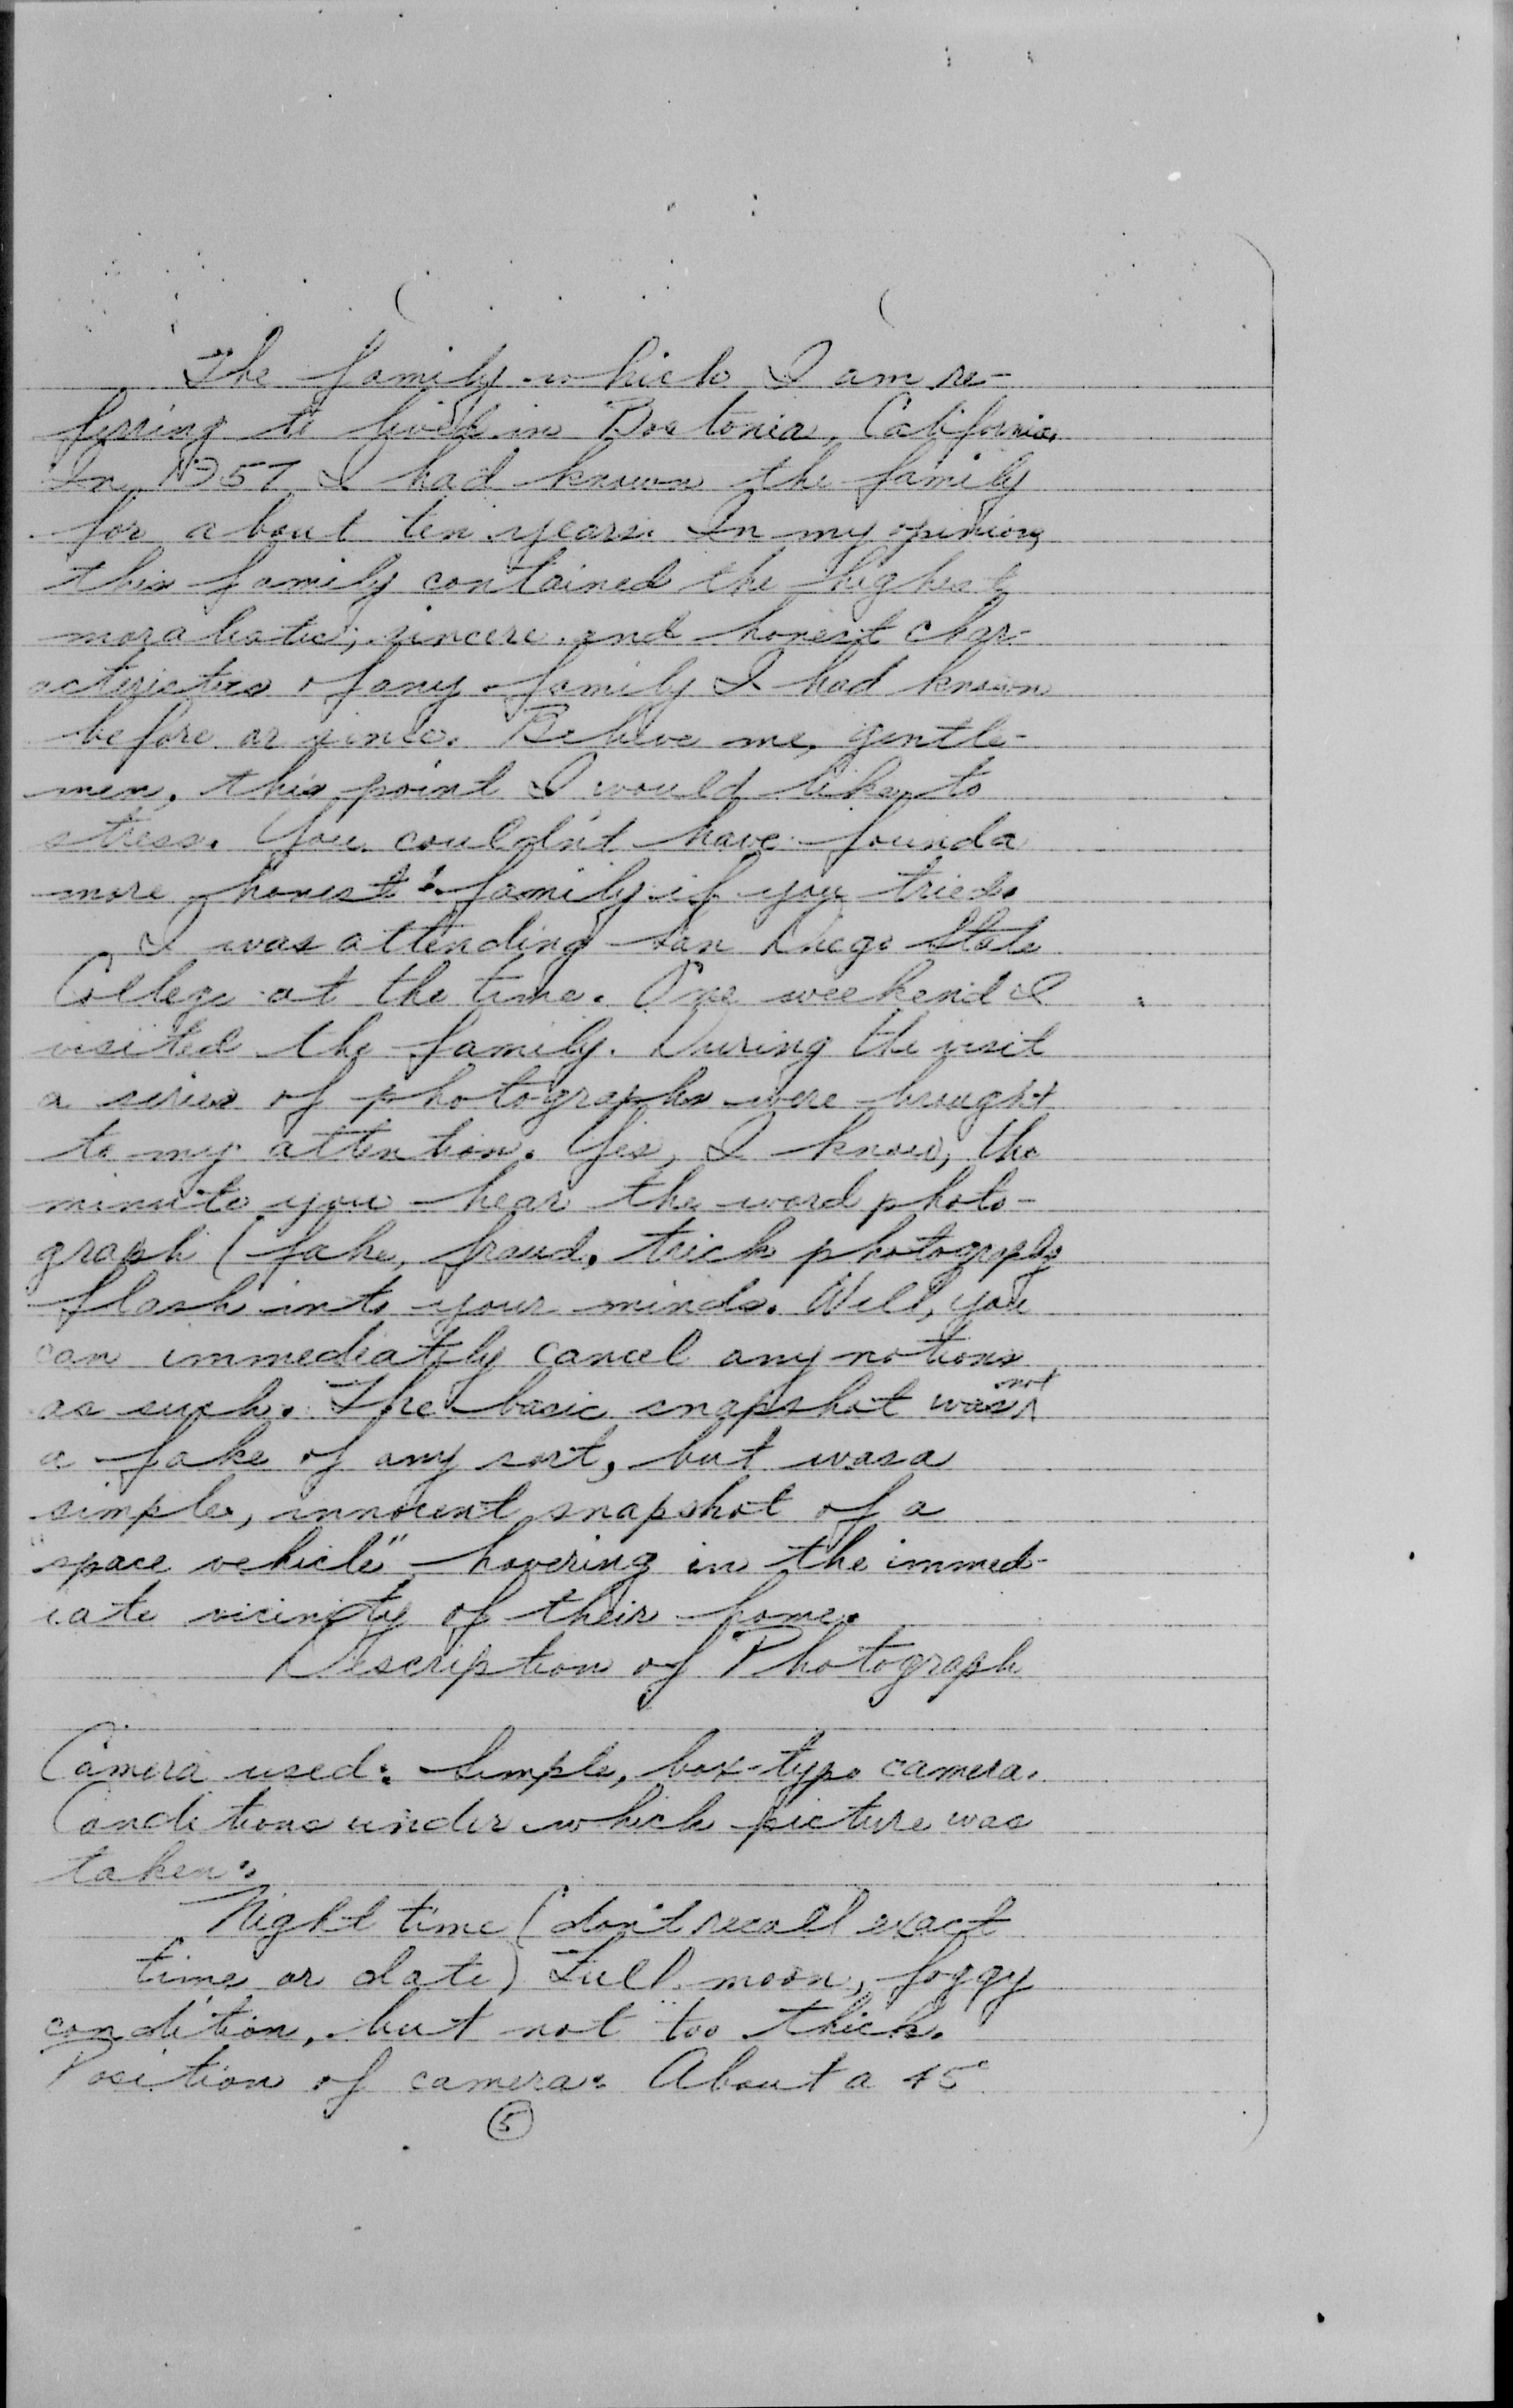 The family which I am re-
ferring to lived in Bostonia, California.
In 1957 I had known the family
for about ten years. In my opinion,
this family contained the highest
moralistic, sincere and honest char-
acteristics of any family I had known
before or since. Believe me, gentle-
men, this point I would like to
stress. You couldn't have found a
more honest family if you tried.
I was attending San Diego State
College at the time. One weekend I
visited the family. During the visit
a series of photographs were brought
to my attention. Yes, I know, the
minute you hear the word photo-
graph (fake, fraud, trick photography
flash into your minds. Well, you
can immediately cancel any notions
as such. The basic snapshot was not
a fake of any sort, but was a
simple, innocent snapshot of a
"space vehicle" hovering in the immed-
iate vicinity of their home.
Description of Photograph
Camera used: Simple, box-type camera.
Conditions under which picture was
taken:
Night time (don't recall exact
time or date) Full moon, foggy
condition, but not too thick.
Position of camera: About a 45°
5